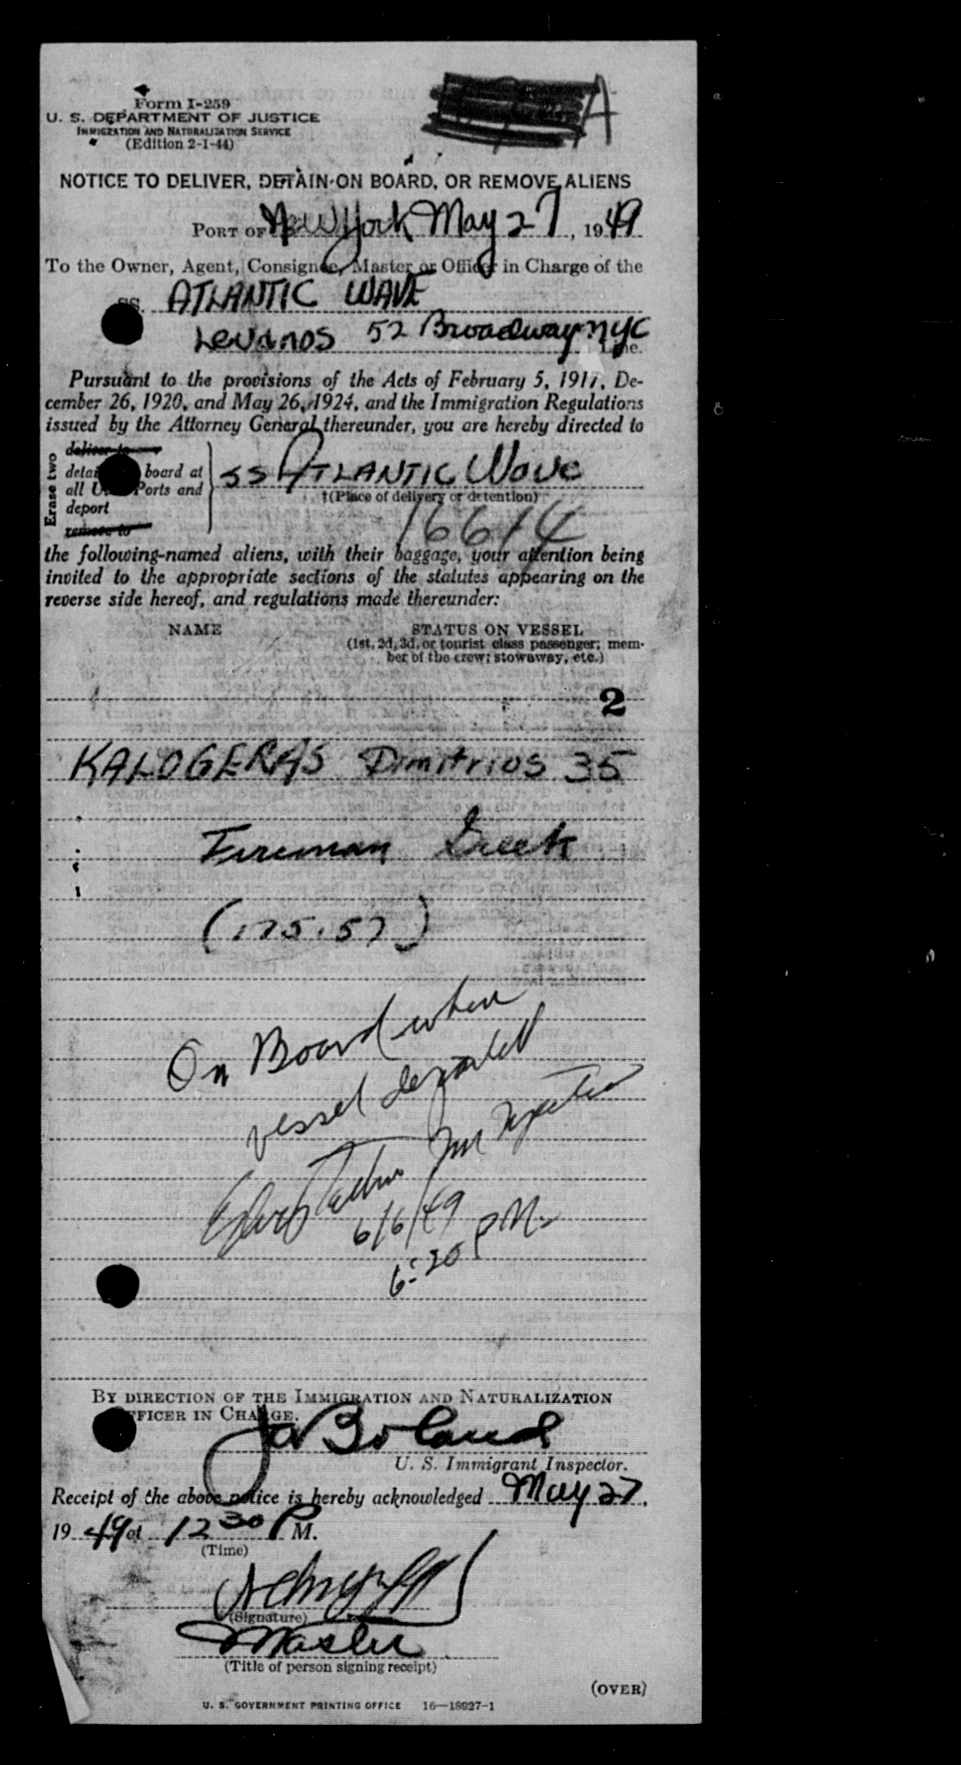 Form I-259
U. S. DEPARTMENT OF JUSTICE
IMMIGRATION AND NATURALIZATION SERVICE
(Edition 2-1-44)
NOTICE TO DELIVER, DETAIN ON BOARD, OR REMOVE ALIENS
PORT OF New York May 27, 1949
To the Owner, Agent, Consignee, Master or Officer in Charge of the
SS. ATLANTIC WAVE
Levanos 52 Broadway NYC Line.
Pursuant to the provisions of the Acts of February 5, 1917, De-
cember 26, 1920, and May 26, 1924, and the Immigration Regulations
issued by the Attorney General thereunder, you are hereby directed to
Erase two
deliver to
detain board at
all U. Ports and
deport
remove to
SS ATLANTIC Wave
†(Place of delivery or detention)
16614
the following-named aliens, with their baggage, your attention being
invited to the appropriate sections of the statutes appearing on the
reverse side hereof, and regulations made thereunder:
NAME STATUS ON VESSEL
(1st, 2d, 3d, or tourist class passenger; mem-
ber of the crew; stowaway, etc.)
2
KALOGERAS Dimitrios 35
Fireman Greek
(175.57)
On Board when
vessel departed
6/6/49
6:20 PM.
BY DIRECTION OF THE IMMIGRATION AND NATURALIZATION
OFFICER IN CHARGE.
Boland
U. S. Immigrant Inspector.
Receipt of the above notice is hereby acknowledged May 27,
1949 at 12 30 P M.
(Time)
(Signature)
Master
(Title of person signing receipt)
(OVER)
U. S. GOVERNMENT PRINTING OFFICE 16—18927-1